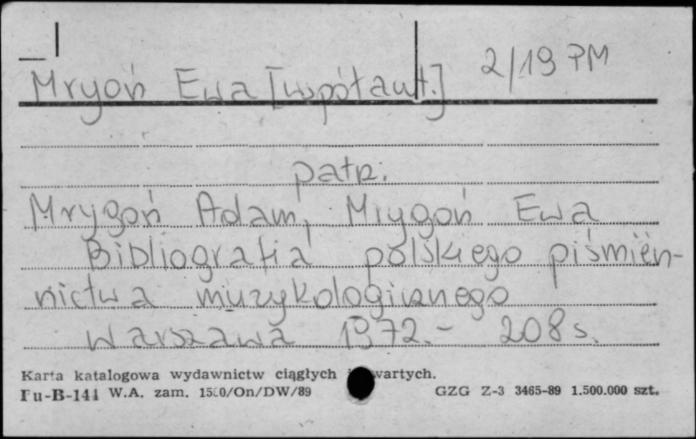 Mryoń Ewa [współaut.] 2/19 PM
patrz.
Mrygoń Adam, Mrygoń Ewa
Bibliografia polskiego piśmien-
nictwa muzykologicznego
Warszawa 1972.- 208 s.
Karta katalogowa wydawnictw ciągłych wartych.
Pu-B-141 W.A. zam. 1500/On/DW/89 GZG Z-3 3465-89 1.500.000 szt.